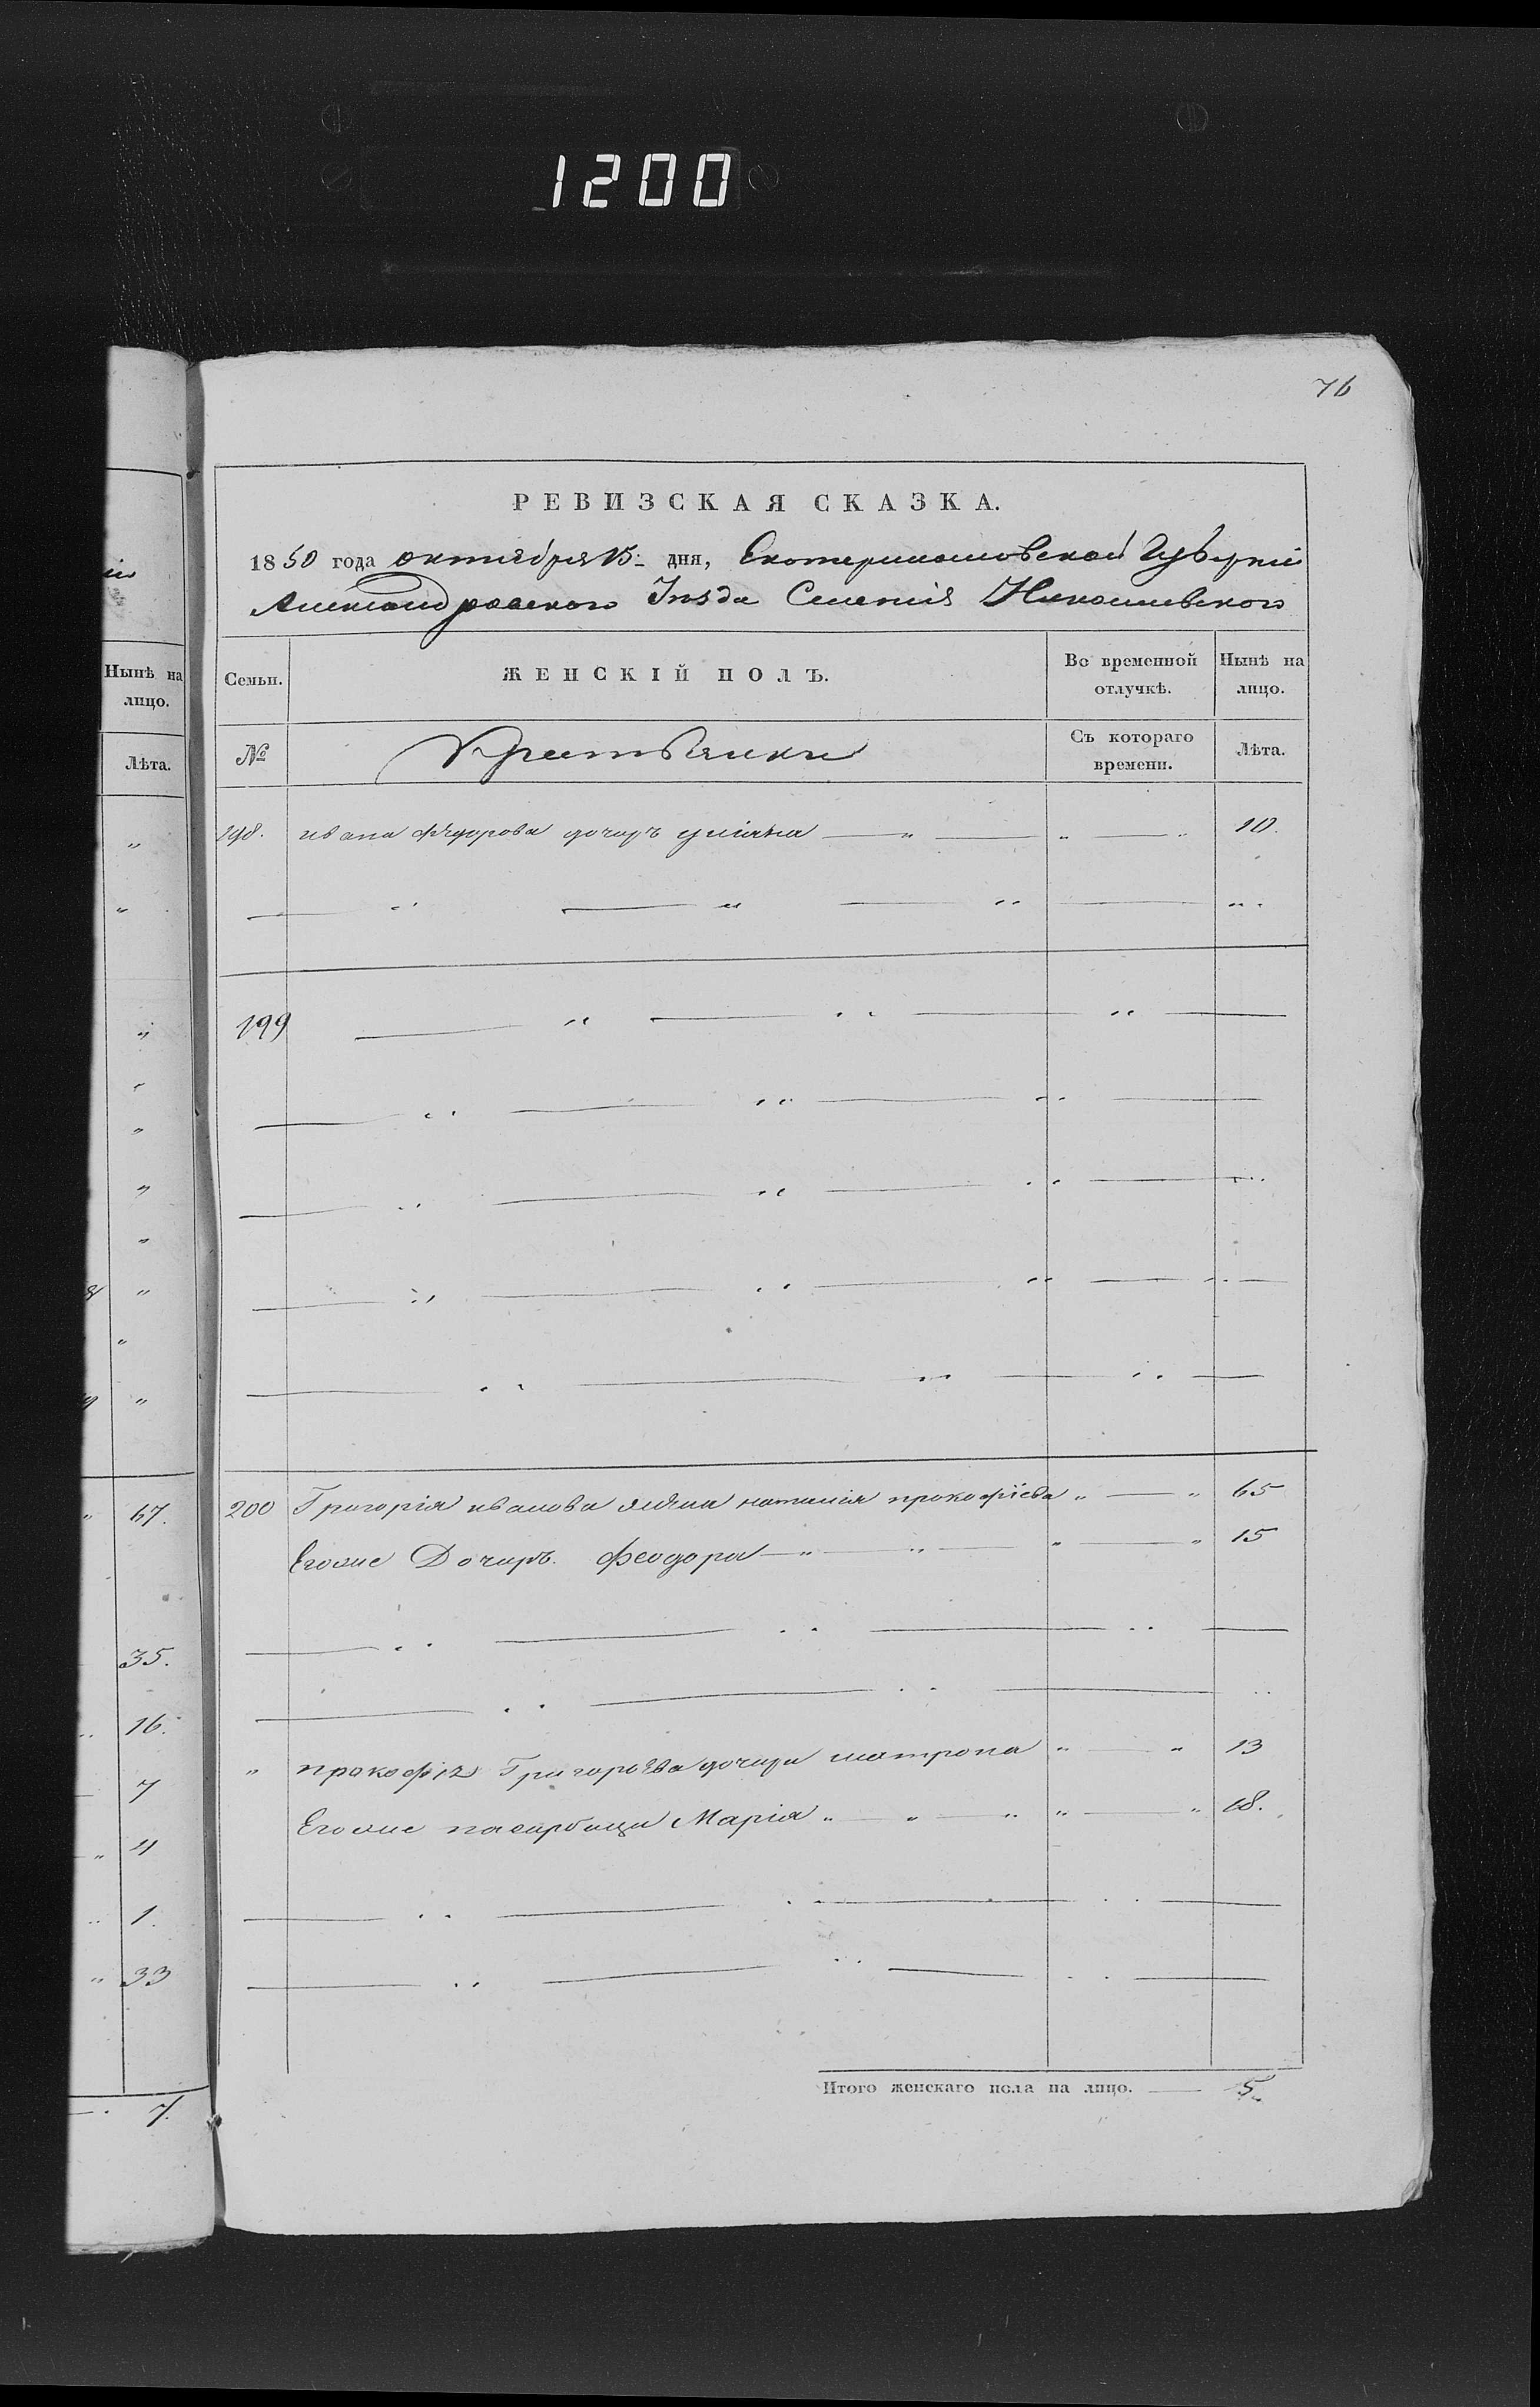 1200
76
РЕВИЗСКАЯ СКАЗКА.
1850 года октября 15 дня, Екатеринославской Губерніи
Александровского Уезда Селенія Николаевского
Нынѣ на лицо.
Лѣта.
67.
35.
16.
7
4
1.
33
7.
Семьи. ЖЕНСКІЙ ПОЛЪ. Во временной отлучкѣ. Нынѣ на лицо.
№ Крестьянки Съ котораго времени. Лѣта.
198. ивана федорова дочеръ улiяна " " " 10.
199
200 Григорія иванова жена наталія прокофіева " " 65
Егоже Дочеръ. феодора " " " " 15
" прокофія Григорьева дочери матрона " " 13
Егоже пасербица Марія " " " " " 18.
Итого женскаго пола на лицо. 5